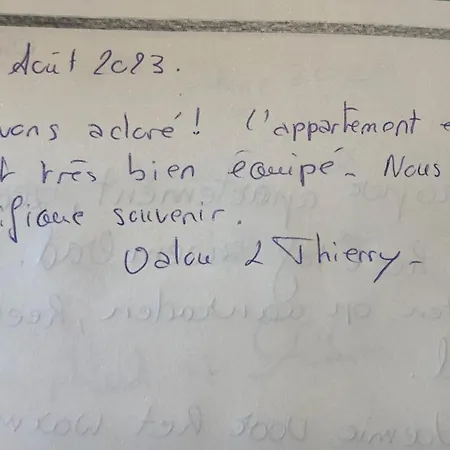 Août 2023.
vons adoré! L'appartement e
t très bien équipé. Nous
ifique souvenir.
Valou & Thierry.